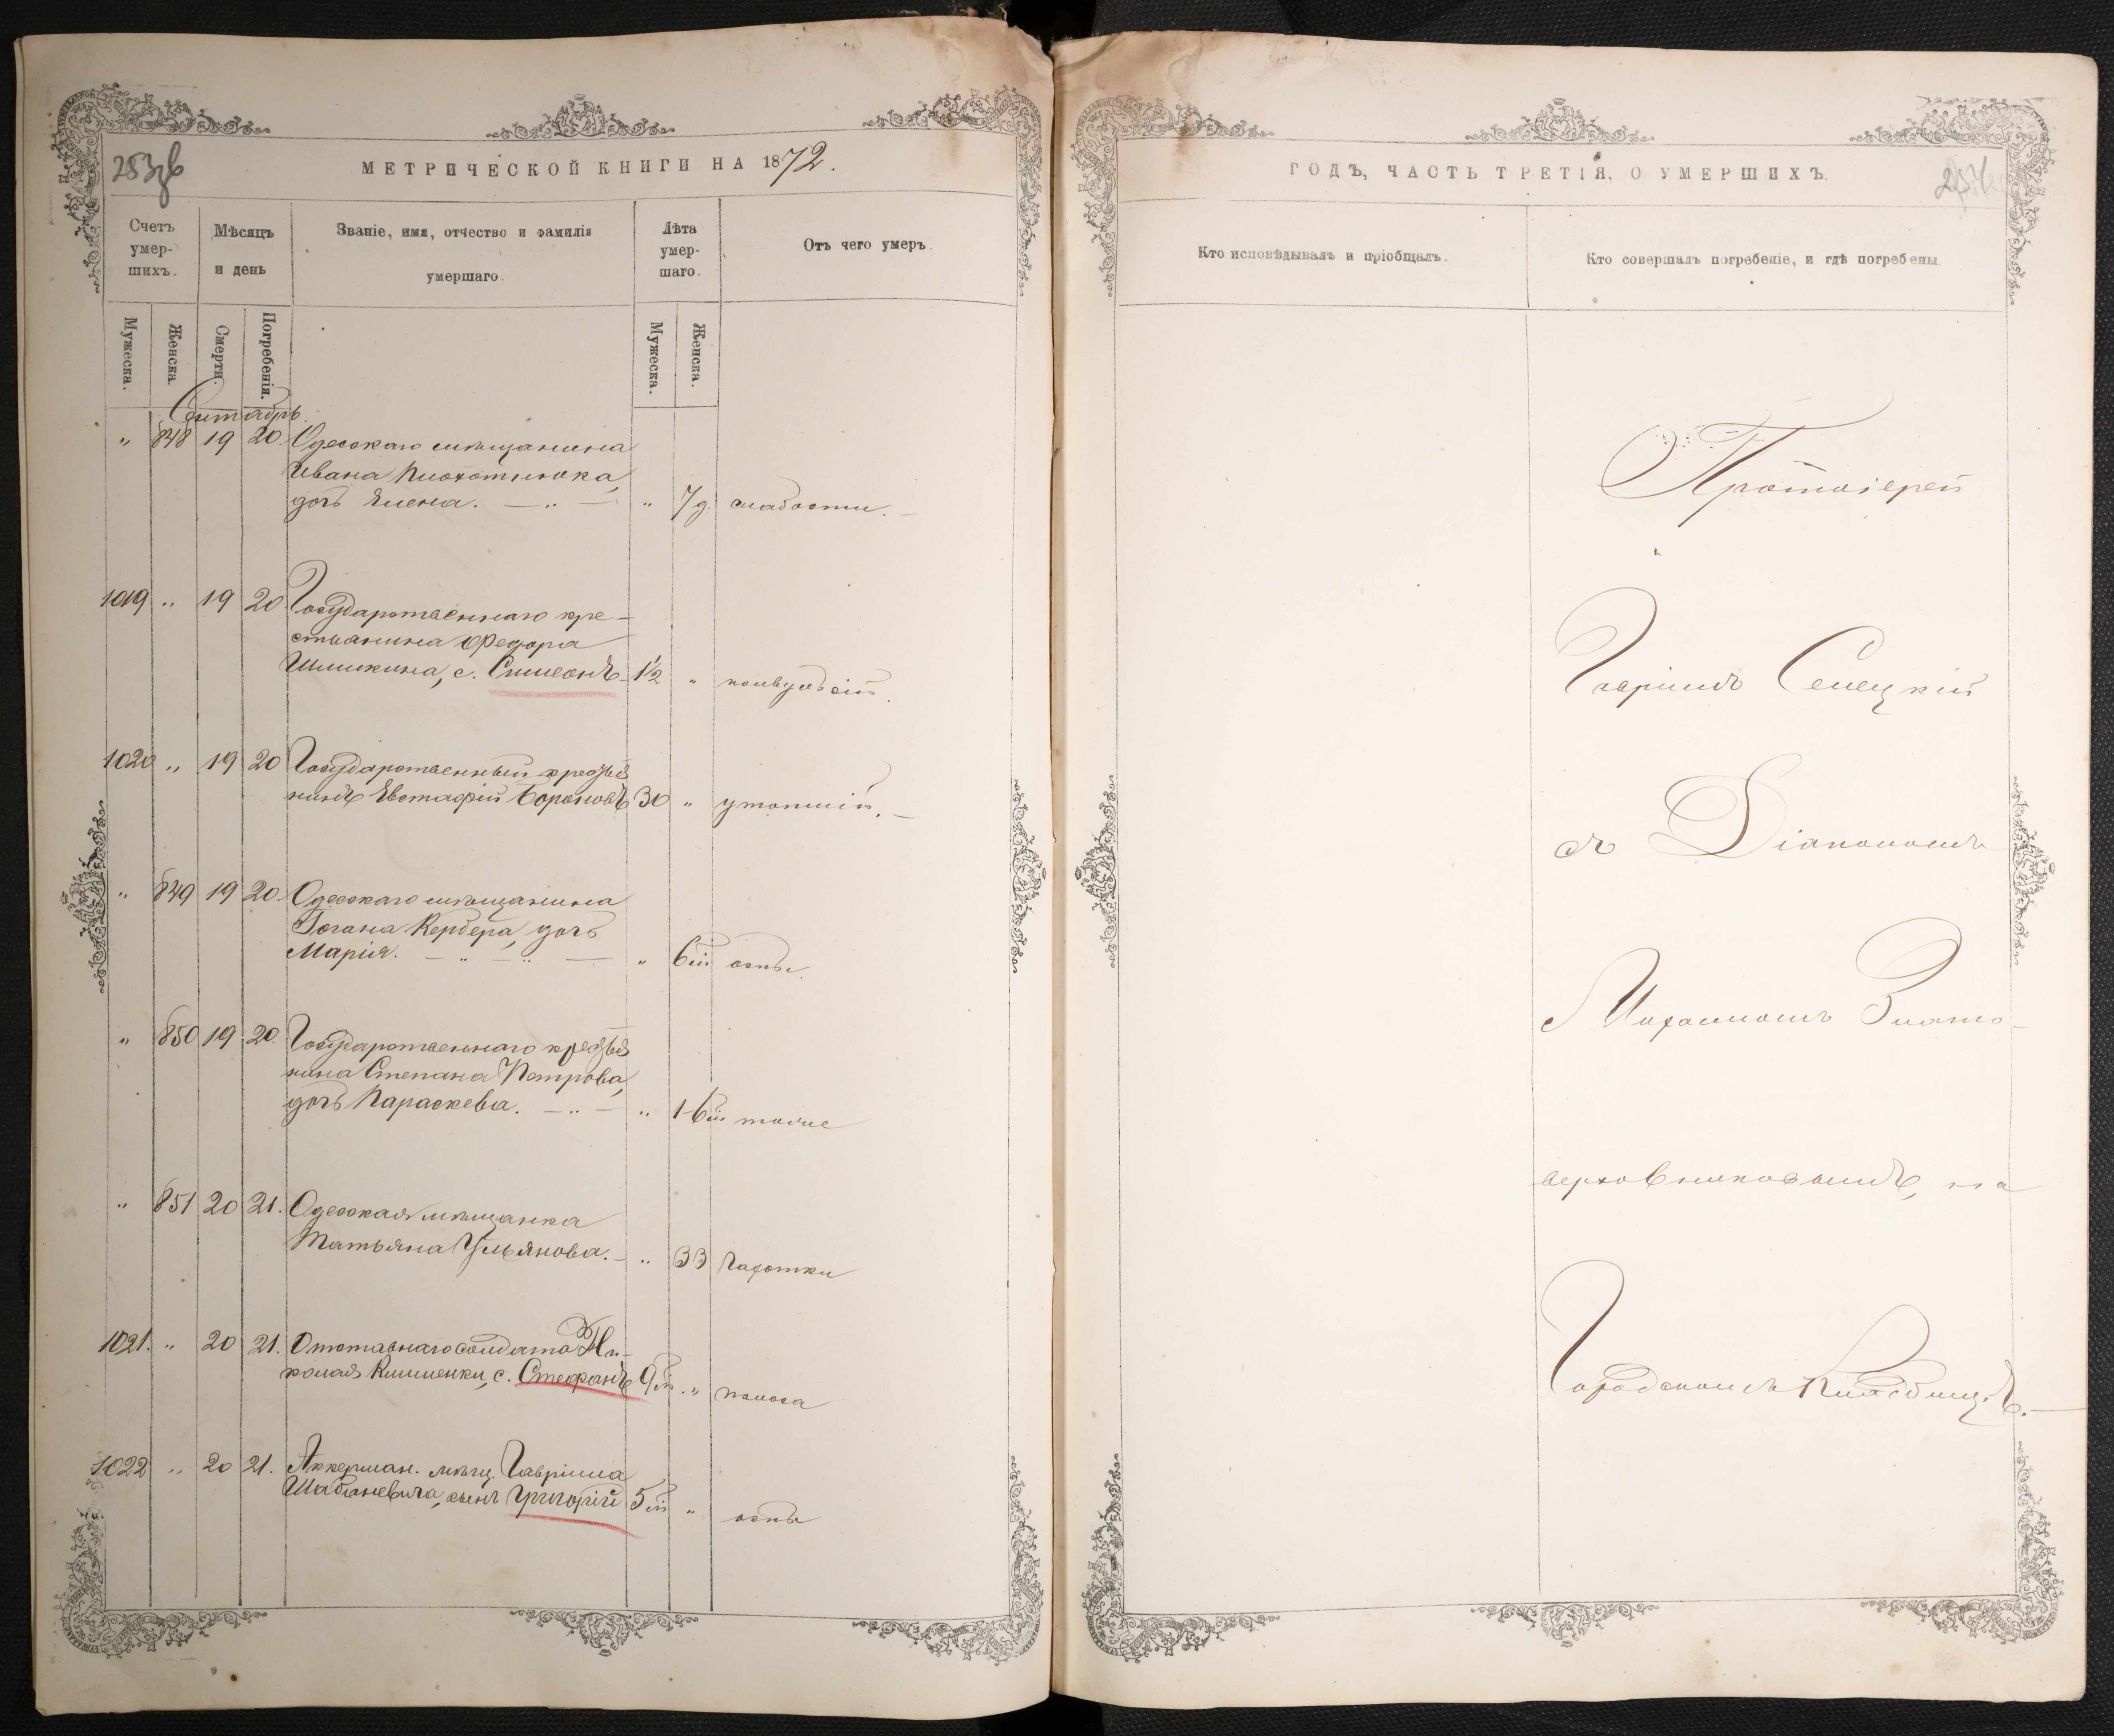 253зв
МЕТРИЧЕСКОЙ КНИГИ НА 1872.
Счетъ умер-шихъ.
Мѣсяцъ и день
Званіе, имя, отчество и фамилія умершаго.
Лѣта умер-шаго.
Отъ чего умеръ.
Мужеска.
Женска.
Смерти.
Погребенія.
Мужеска.
Женска.
Сентябрь.
„ 848 19 20. Одесскаго мѣщанина
Ивана
дочь Елена. — „ — „ 7 д. слабости. —
1019 „ 19 20 Государственнаго кре-
стьянина Федора
Шишкина, с. Симеонъ 1½ „ конвульсій.
1020 „ 19 20 Государственный крестья
нинъ Евстафій Бороновъ 30 „ утопшій. —
„ 849 19 20. Одесскаго мѣщанина
Іогана Кербера, дочь
Марія. — „ — „ — „ 6 м оспы.
„ 850 19 20. Государственнаго крестья
нина Степана Петрова,
дочь Параскева. — „ — „ 1-6 м тоже
„ 851 20 21. Одесская мѣщанка
Татьяна Ульянова. — „ 33 чахотки
1021. „ 20 21. Отставнаго солдата Ни-
колая Клименки, с. Стефанъ 9 м. „ поноса
1022 „ 20 21. Аккерман. мѣщ. Гавріила
Шабаневича, сынъ Григорій 5 м „ оспы
ГОДЪ, ЧАСТЬ ТРЕТІЯ, О УМЕРШИХЪ.
Кто исповѣдывалъ и пріобщалъ.
Кто совершалъ погребеніе, и гдѣ погребены.
Протоіерей
Гавріилъ Селецкій
съ Діакономъ
Михаиломъ Злато-
верховниковымъ, на
Городскомъ Кладбищѣ. —